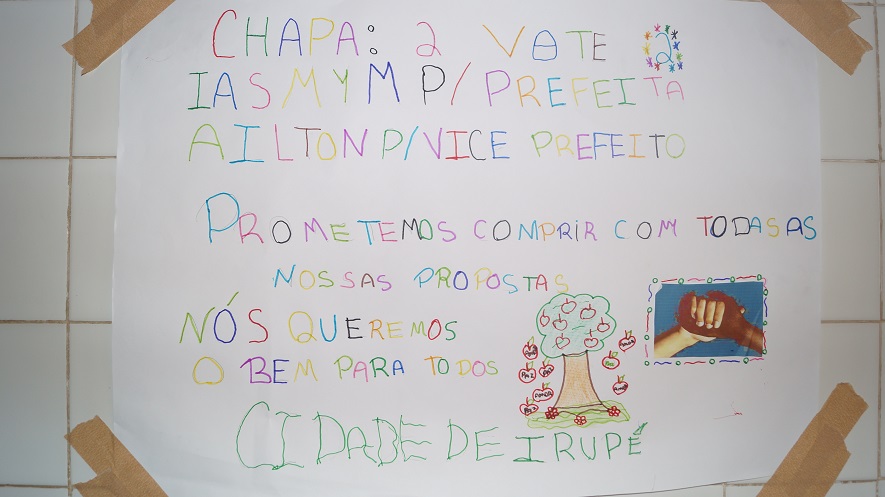 CHAPA: 2 VATE 2
IASMYM P/ PREFEITA
AILTON P/VICE PREFEITO
PROMETEMOS COMPRIR COM TODAS AS
NOSSAS PROPOSTAS
NÓS QUEREMOS
O BEM PARA TODOS
CIDADE DE IRUPÉ